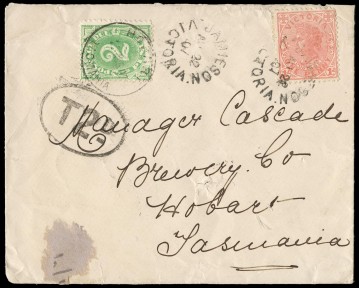 JAMIESON
VICTORIA
VICTORIA
2
T 2
Manager Cascade
Brewery. Co
Hobart
Tasmania